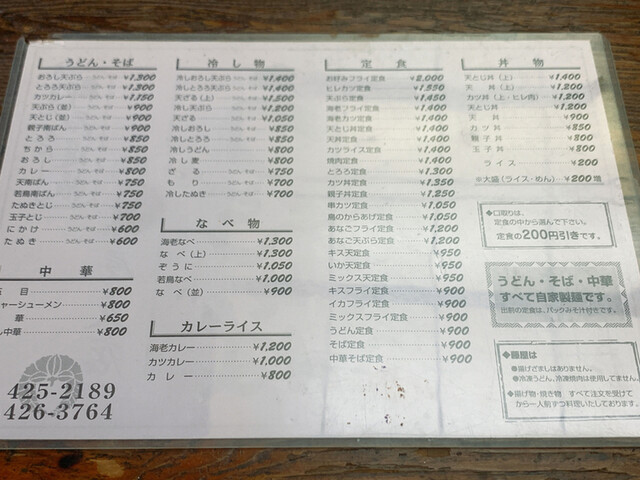 うどん・そば
おろし天ぷら うどん・そば ¥1,300
とろろ天ぷら うどん・そば ¥1,300
カツカレー うどん・そば ¥1,150
天ぷら（並） うどん・そば ¥900
天とじ（並） うどん・そば ¥900
親子南ばん うどん・そば ¥900
とろろ うどん・そば ¥850
ちから うどん・そば ¥850
おろし うどん・そば ¥850
カレー うどん・そば ¥800
天南ばん うどん・そば ¥750
若鳥南ばん うどん・そば ¥750
たぬきとじ うどん・そば ¥750
玉子とじ うどん・そば ¥700
にかけ うどん・そば ¥600
たぬき うどん・そば ¥600
中華
目 ¥800
ャーシューメン ¥800
華 ¥650
ル中華 ¥800
425-2189
426-3764
冷し物
冷しおろし天ぷら うどん・そば ¥1,400
冷しとろろ天ぷら うどん・そば ¥1,400
天ざる（上） うどん・そば ¥1,500
冷し天ぷら うどん・そば ¥1,200
天ざる うどん・そば ¥1,050
冷しおろし うどん・そば ¥850
冷しとろろ うどん・そば ¥850
冷しうどん ¥800
冷し麦 ¥800
ざる うどん・そば ¥750
もり うどん・そば ¥700
冷したぬき うどん・そば ¥700
なべ物
海老なべ ¥1,300
なべ（上） ¥1,300
ぞうに ¥1,050
若鳥なべ ¥1,000
なべ（並） ¥900
カレーライス
海老カレー ¥1,200
カツカレー ¥1,000
カレー ¥800
定食
お好みフライ定食 ¥2,000
ヒレカツ定食 ¥1,550
天ぷら定食 ¥1,450
海老フライ定食 ¥1,400
海老カツ定食 ¥1,400
天とじ丼定食 ¥1,400
天丼定食 ¥1,400
カツライス定食 ¥1,400
焼肉定食 ¥1,400
とろろ定食 ¥1,300
カツ丼定食 ¥1,350
親子丼定食 ¥1,250
串カツ定食 ¥1,050
鳥のからあげ定食 ¥1,050
あなごフライ定食 ¥1,200
あなご天ぷら定食 ¥1,200
キス天定食 ¥950
いか天定食 ¥950
ミックス天定食 ¥950
キスフライ定食 ¥900
イカフライ定食 ¥900
ミックスフライ定食 ¥900
うどん定食 ¥900
そば定食 ¥900
中華そば定食 ¥900
丼物
天とじ丼（上） ¥1,400
天丼（上） ¥1,200
カツ丼（上・ヒレ肉） ¥1,200
天とじ丼 ¥1,200
天丼 ¥900
カツ丼 ¥850
親子丼 ¥800
玉子丼 ¥800
ライス ¥200
※大盛（ライス・めん） ¥200増
◆口取りは、
定食の中から選んで下さい。
定食の200円引きです。
うどん・そば・中華
すべて自家製麺です。
出前の定食は、パックみそ汁付きです。
◆藤屋は
●揚げざましはありません。
●冷凍うどん、冷凍焼肉は使用してません。
◆揚げ物・焼き物 すべて注文を受けて
から一人前ずつ料理いたしております。